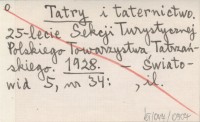 Tatry i taternictwo.
25-lecie Sekcji Turystycznej
Polskiego Towarzystwa Tatrzań-
skiego. 1928. — Świato-
wid 5, nr 34: , il.